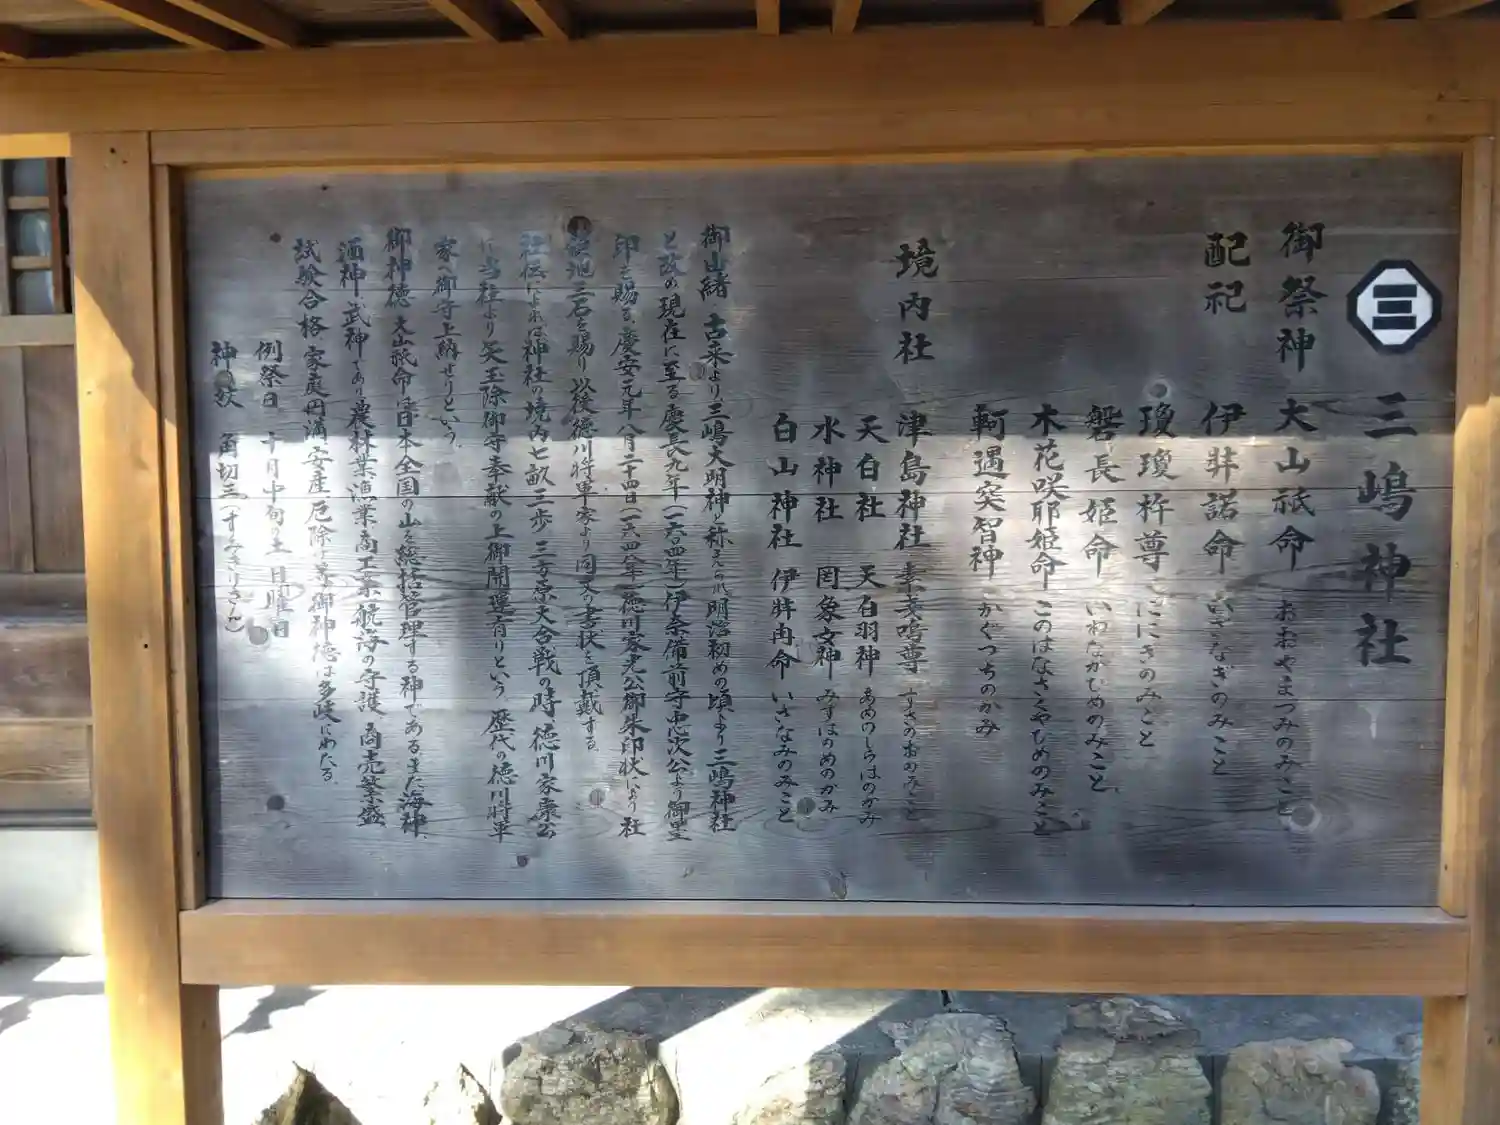 三嶋神社
御祭神 大山祇命 おおやまつみのみこと
配祀 伊弉諾命 いざなぎのみこと
瓊瓊杵尊 ににぎのみこと
磐長姫命 いわながひめのみこと
木花咲耶姫命 このはなさくやひめのみこと
軻遇突智神 かぐつちのかみ
境内社 津島神社 素戔嗚尊 すさのおのみこと
天白社 天白羽神 あめのしらはのかみ
水神社 罔象女神 みずはのめのかみ
白山神社 伊弉冉命 いざなみのみこと
御由緒 古来より三嶋大明神と称えられ明治初めの頃より三嶋神社
と改め現在に至る慶長九年(一六〇四年)伊奈備前守忠次公より御黒
印を賜る、慶安元年八月二十四日(一六四八年)徳川家光公御朱印状により社
領地三石を賜り以後徳川将軍家より同文の書状を頂戴する、
社伝によれば神社の境内七畝二歩、三方原大合戦の時、徳川家康公
に当社より矢玉除御守奉献の上御開運有りという、歴代の徳川将軍
家へ御守上納せりという、
御神徳 大山祇命は日本全国の山を総括管理する神である、また海神、
酒神、武神であり農林業漁業商工業航海の守護 商売繁盛
試験合格 家庭円満 安産厄除け等御神徳は多岐にわたる、
例祭日 十月中旬の土 日曜日
神紋 角切三(すみきりさん)